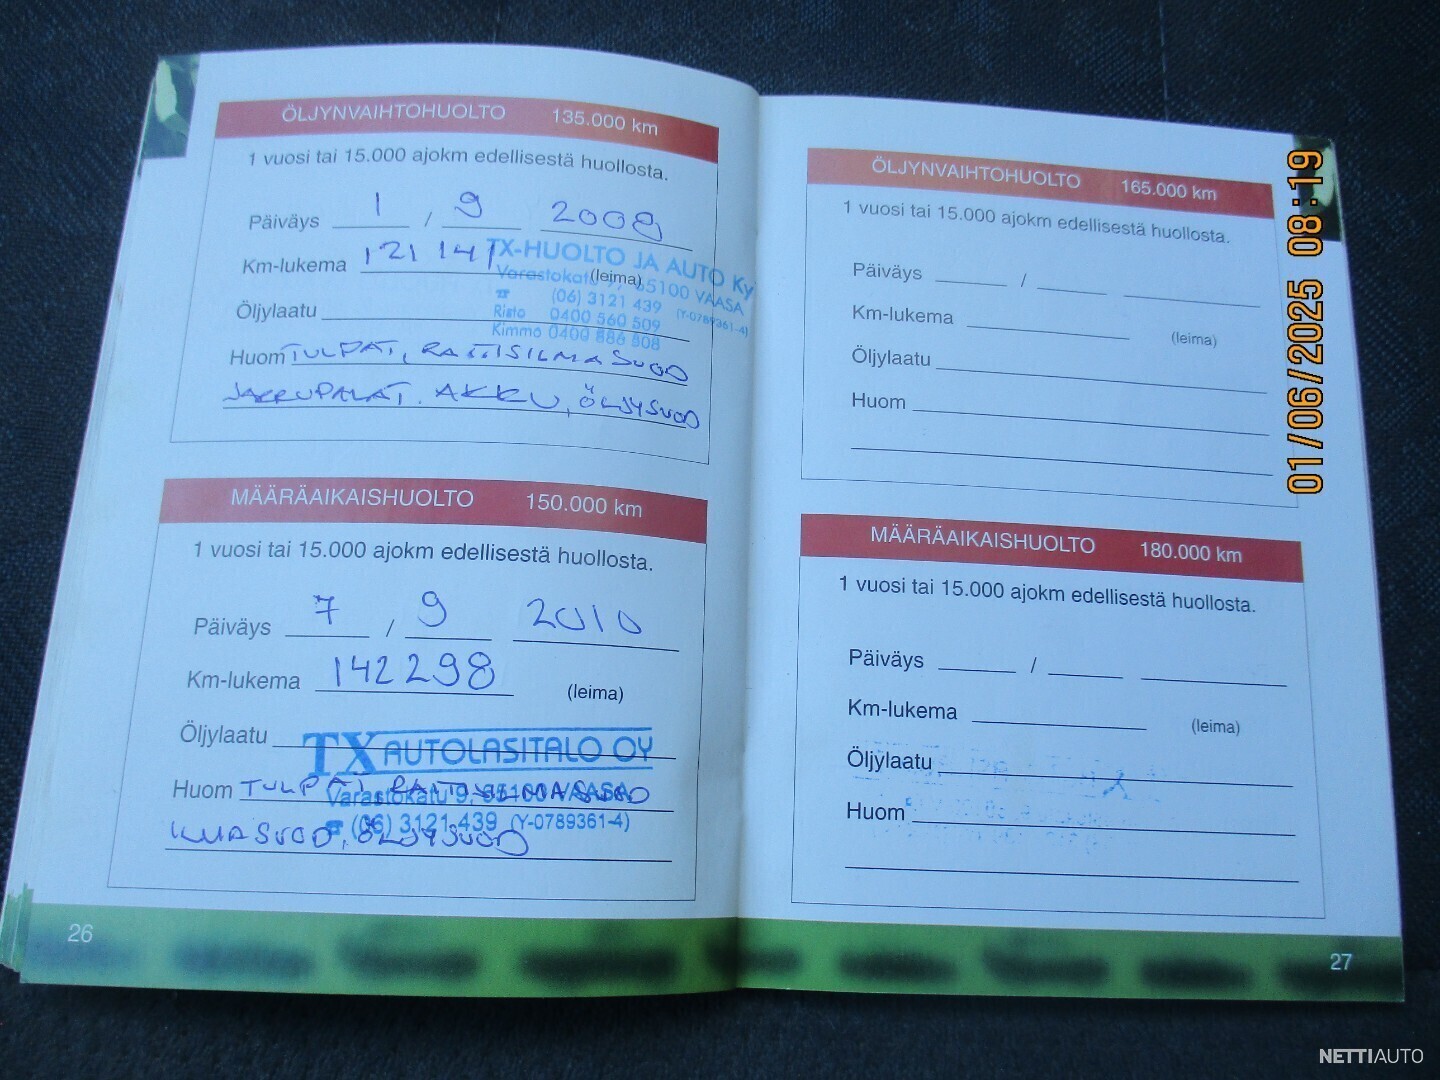 ÖLJYNVAIHTOHUOLTO 135.000 km
1 vuosi tai 15.000 ajokm edellisestä huollosta.
Päiväys 1 / 9 2008
Km-lukema 121 141 (leima)
TX-HUOLTO JA AUTO Ky
Varastokatu 65100 VAASA
(06) 3121 439 (Y-0789361-4)
Risto 0400 560 509
Kimmo 0400 886 808
Öljylaatu
Huom TULPAT, RAITISILMASUOD
JARRUPALAT. AKKU, ÖLJYSUOD
MÄÄRÄAIKAISHUOLTO 150.000 km
1 vuosi tai 15.000 ajokm edellisestä huollosta.
Päiväys 7 / 9 2010
Km-lukema 142298 (leima)
Öljylaatu
TX AUTOLASITALO OY
Varastokatu 9, 65100 VAASA
(06) 3121 439 (Y-0789361-4)
Huom TULPAT, RAITISILMASUOD
ILMASUOD, ÖLJYSUOD
26
ÖLJYNVAIHTOHUOLTO 165.000 km
1 vuosi tai 15.000 ajokm edellisestä huollosta.
Päiväys /
Km-lukema (leima)
Öljylaatu
Huom
MÄÄRÄAIKAISHUOLTO 180.000 km
1 vuosi tai 15.000 ajokm edellisestä huollosta.
Päiväys /
Km-lukema (leima)
Öljylaatu
Huom
27
01/06/2025 08:19
NETTIAUTO